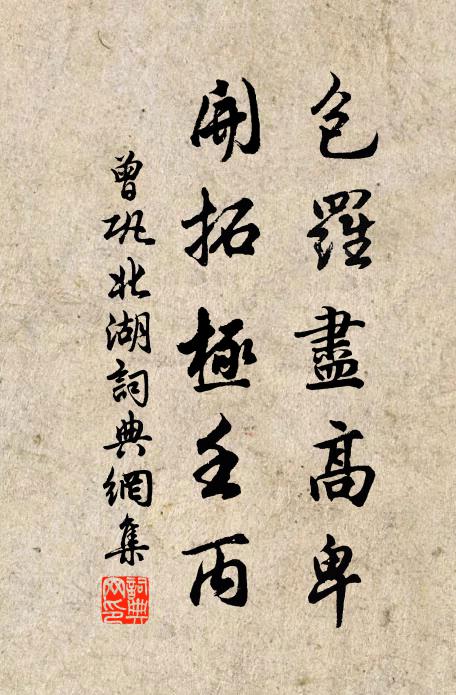 包羅盡高卑
開拓極壬丙
曾巩北湖詞典網集
詞典網印